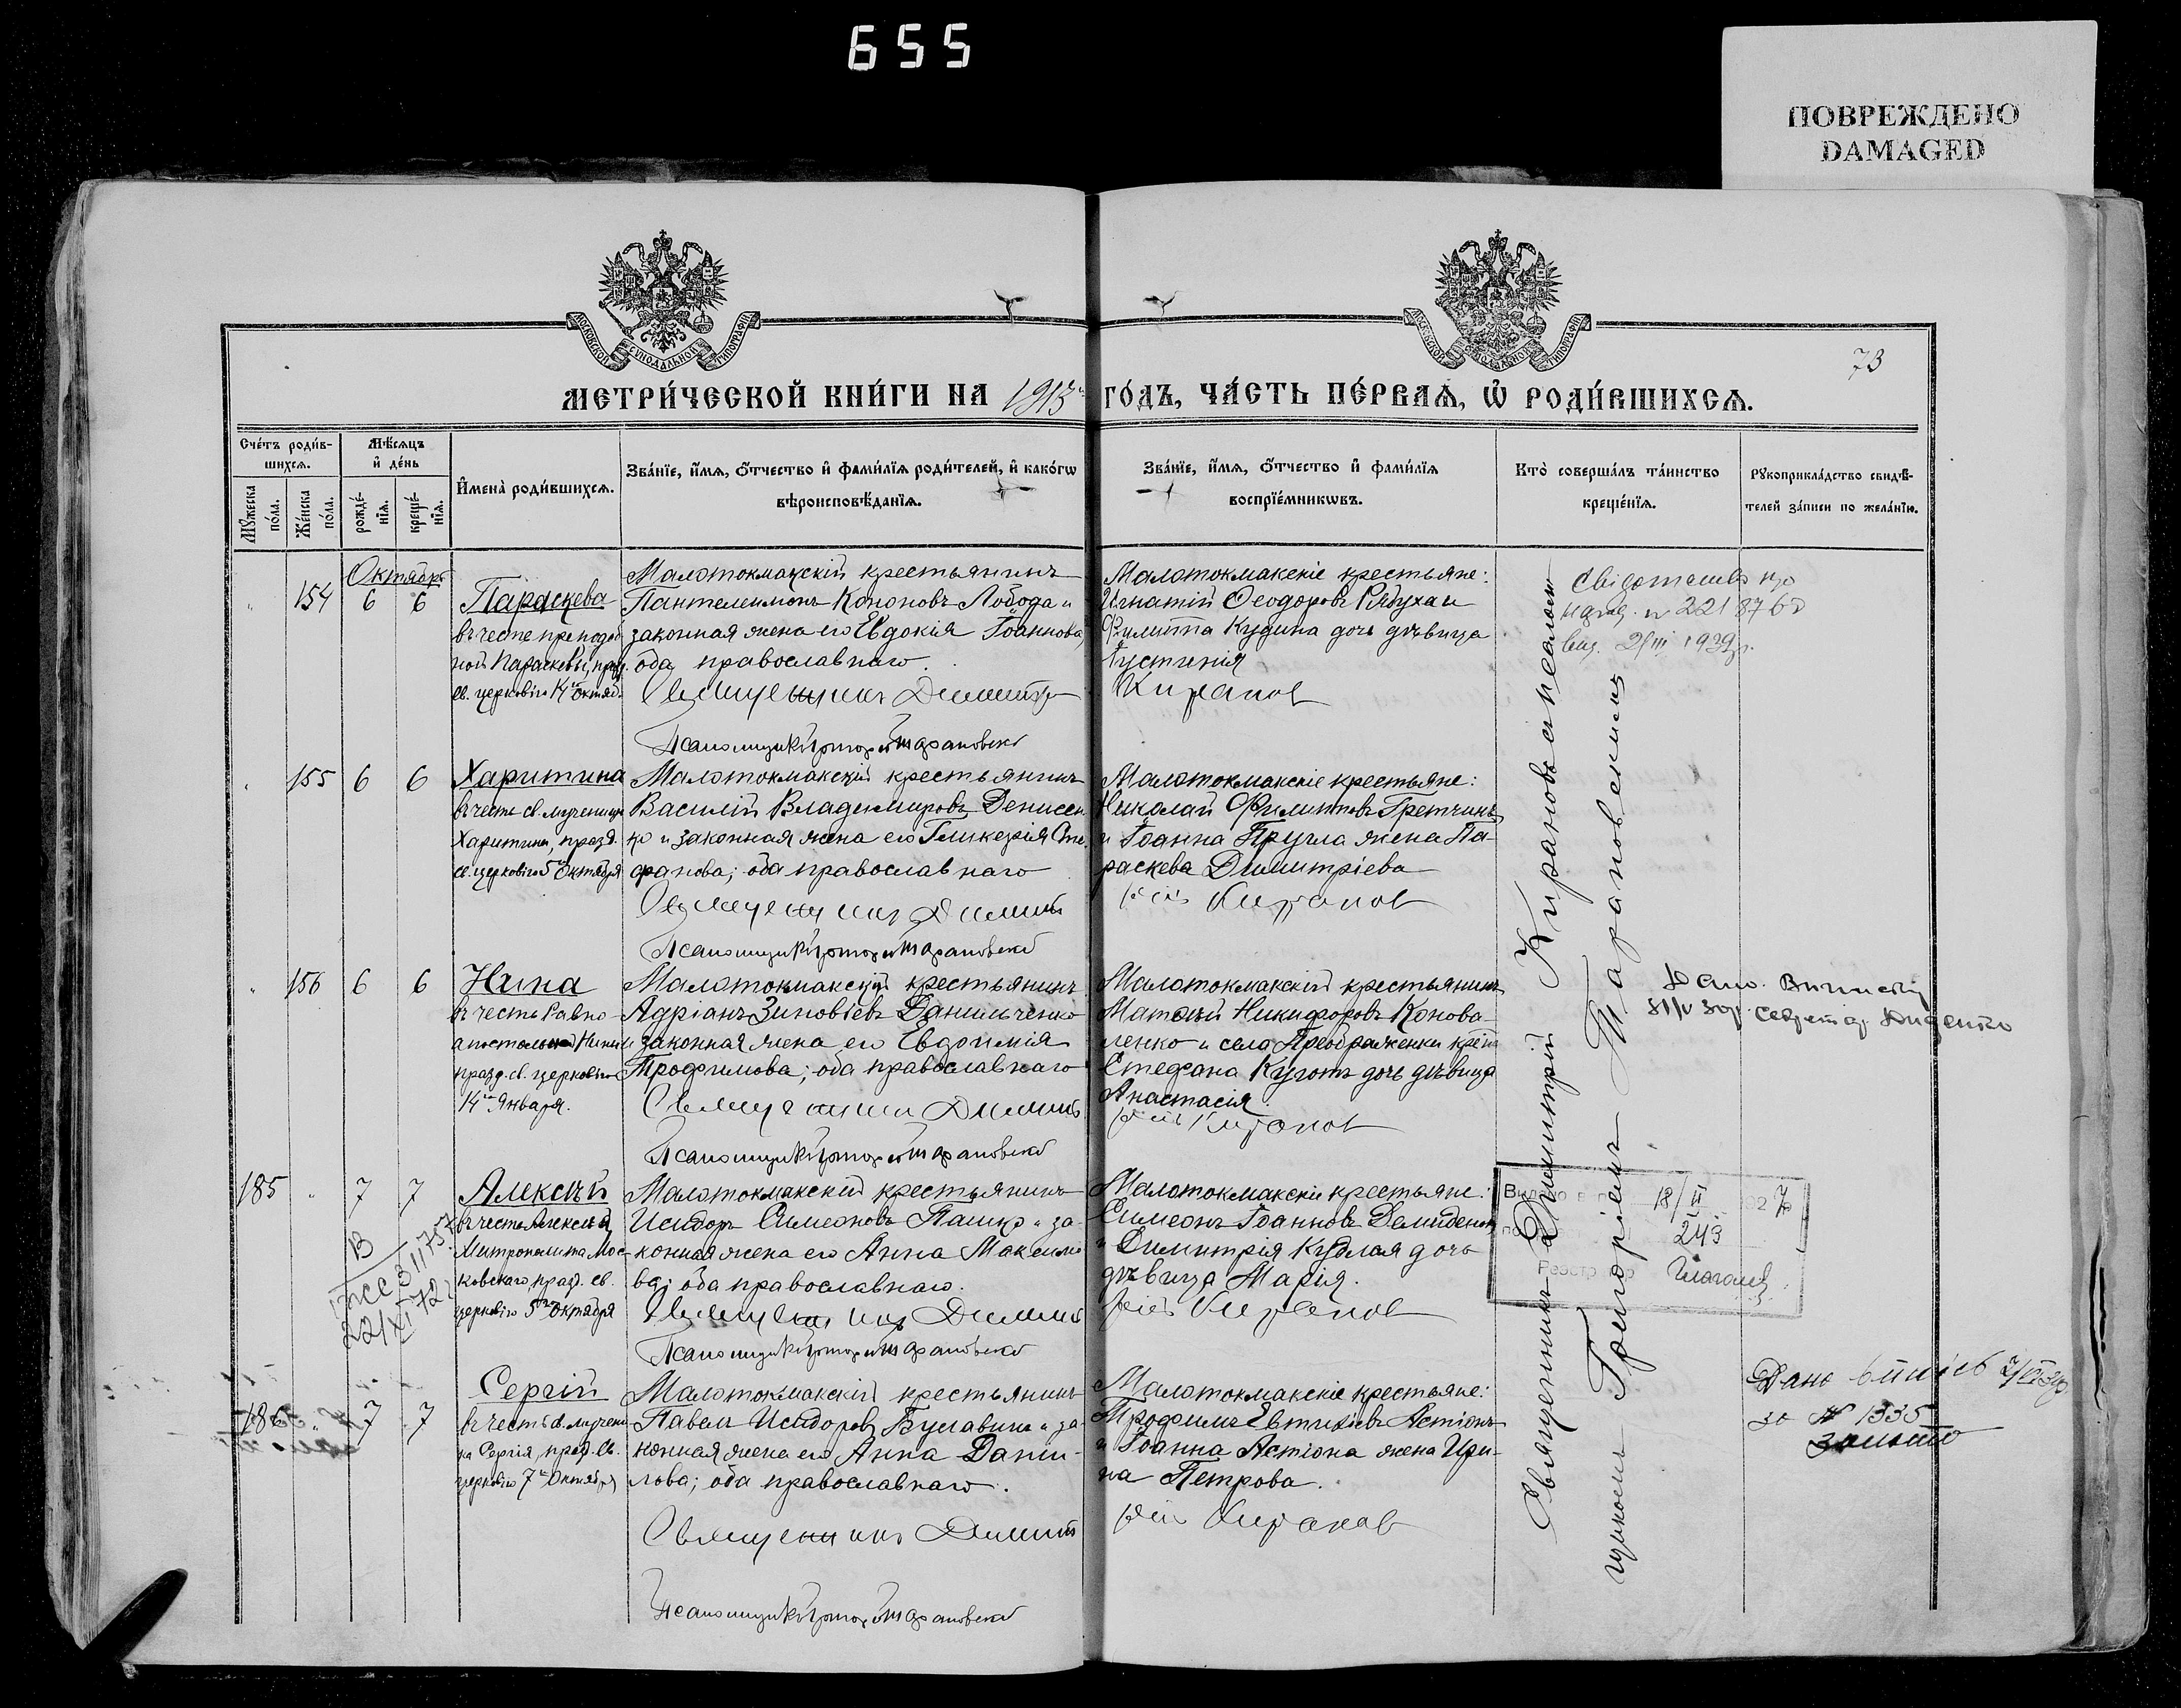 655
ПОВРЕЖДЕНО
DAMAGED
МОСКОВСКОЙ СѴНОДАЛЬНОЙ ТИПОГРАФІИ
МОСКОВСКОЙ СѴНОДАЛЬНОЙ ТИПОГРАФІИ
73
МЕТРИ́ЧЕСКОЙ КНИ́ГИ НА 1913й ГО́ДЪ, ЧА́СТЬ ПЕ́РВАѦ, Ѽ РОДИ́ВШИХСѦ.
Сче́тъ роди́в-
шихсѧ.
Мꙋжеска по́ла.
Же́нска по́ла.
Мѣ́сѧцъ
и҆ де́нь
рожде́-
нїѧ.
креще́-
нїѧ.
И҆мена̀ роди́вшихсѧ.
Зва́нїе, и҆́мѧ, ѻ҆́тчество и҆ фами́лїѧ роди́телей, и҆ како́гѡ
вѣроисповѣ́данїѧ.
Зва́нїе, и҆́мѧ, ѻ҆́тчество и҆ фами́лїѧ
воспрїе́мникѡвъ.
Кто̀ соверша́лъ та́инство
креще́нїѧ.
Рꙋкоприкла́дство свидѣ́-
телей за́писи по жела́нїю.
Октябрь
154 6 6
Параскева
въ честь преподоб
ной Параскевы, празд.
св. церковію 14го октяб.
Малотокмакскій крестьянинъ
Пантелеимонъ Кононовъ Лобода и
законная жена его Евдокія Іоаннова,
оба православнаго.
Священникъ Димитр
Псаломщикъ Григорій Тарановскій
Малотокмакскіе крестьяне:
Игнатій Ѳеодоровъ Рябуха и
Филиппа Кудина дочь дѣвица
Іустинія
Киранов
155 6 6
Харитина
въ честь св. мученицы
Харитины, празд.
св. церковію 5го Октября
Малотокмакскій крестьянинъ
Василій Владимировъ Денисен
ко и законная жена его Гликерія Сте
фанова; оба православнаго
Священникъ Димит
Псаломщикъ Григорій Тарановскій
Малотокмакскіе крестьяне:
Николай Филипповъ Гретчинъ
и Іоанна Пругла жена Па-
раскева Димитріева
рій Киранов
156 6 6
Нина
въ честь Равно-
апостольной Нины
празд. св. церковію
14го Января.
Малотокмакскій крестьянинъ
Адріанъ Зиновіевъ Данильченко
и законная жена его Евдокимія
Трофимова; оба православнаго
Священникъ Димит
Псаломщикъ Григорій Тарановскій
Малотокмакскій крестьянинъ
Матѳій Никифоровъ Конова-
ленко и села Преображенки крест.
Стефана Куготъ дочь дѣвица
Анастасія.
рій Киранов
185 7 7
Алексѣй
въ честь Алексѣя
Митрополита Мос-
ковскаго, празд. св.
церковію 5го Октября
Малотокмакскій крестьянинъ
Исидоръ Симеоновъ Пашко и за-
конная жена его Анна Максимо
ва; оба православнаго.
Священникъ Димит
Псаломщикъ Григорій Тарановскій
Малотокмакскіе крестьяне:
Симеонъ Іоанновъ Демиденко
и Димитрія Кудлая дочь
дѣвица Марія.
рій Киранов
186 7 7
Сергій
въ честь св. мучени
ка Сергія, празд. св.
церковію 7го Октября
Малотокмакскій крестьянинъ
Павелъ Исидоровъ Булавинъ и за-
конная жена его Анна Дани-
лова; оба православнаго.
Священникъ Димит
Псаломщикъ Григорій Тарановскій
Малотокмакскіе крестьяне:
Трофимъ Евтихіевъ Астіонъ
и Іоанна Астіона жена Ири-
на Петрова.
рій Киранов
Священникъ Димитрій Кирановъ и псалом-
щикомъ Григоріемъ Тарановскимъ
18/II 27
243
Дано
за № 1335